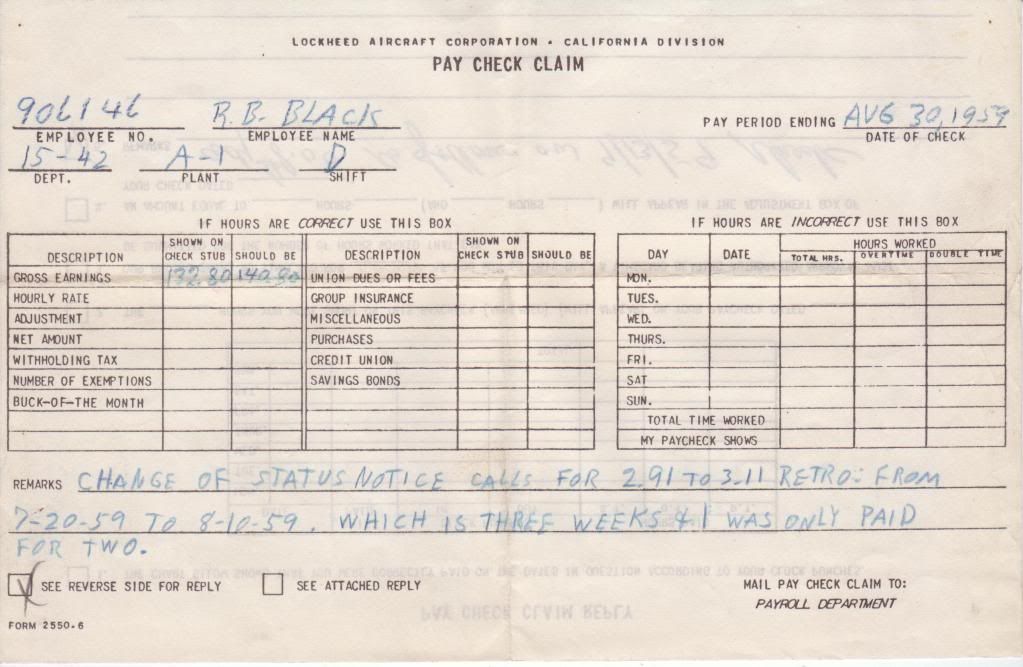 LOCKHEED AIRCRAFT CORPORATION • CALIFORNIA DIVISION
PAY CHECK CLAIM
906146 R.B. BLACK PAY PERIOD ENDING AUG 30, 1959
EMPLOYEE NO. EMPLOYEE NAME DATE OF CHECK
15-42 A-1 D
DEPT. PLANT SHIFT
IF HOURS ARE CORRECT USE THIS BOX
DESCRIPTION SHOWN ON CHECK STUB SHOULD BE DESCRIPTION SHOWN ON CHECK STUB SHOULD BE
GROSS EARNINGS 132.80 140.80 UNION DUES OR FEES
HOURLY RATE GROUP INSURANCE
ADJUSTMENT MISCELLANEOUS
NET AMOUNT PURCHASES
WITHHOLDING TAX CREDIT UNION
NUMBER OF EXEMPTIONS SAVINGS BONDS
BUCK-OF-THE MONTH
IF HOURS ARE INCORRECT USE THIS BOX
DAY DATE HOURS WORKED
TOTAL HRS. OVERTIME DOUBLE TIME
MON.
TUES.
WED.
THURS.
FRI.
SAT
SUN.
TOTAL TIME WORKED
MY PAYCHECK SHOWS
REMARKS CHANGE OF STATUS NOTICE CALLS FOR 2.91 TO 3.11 RETRO: FROM
7-20-59 TO 8-10-59. WHICH IS THREE WEEKS & I WAS ONLY PAID
FOR TWO.
SEE REVERSE SIDE FOR REPLY SEE ATTACHED REPLY MAIL PAY CHECK CLAIM TO:
PAYROLL DEPARTMENT
FORM 2550-6